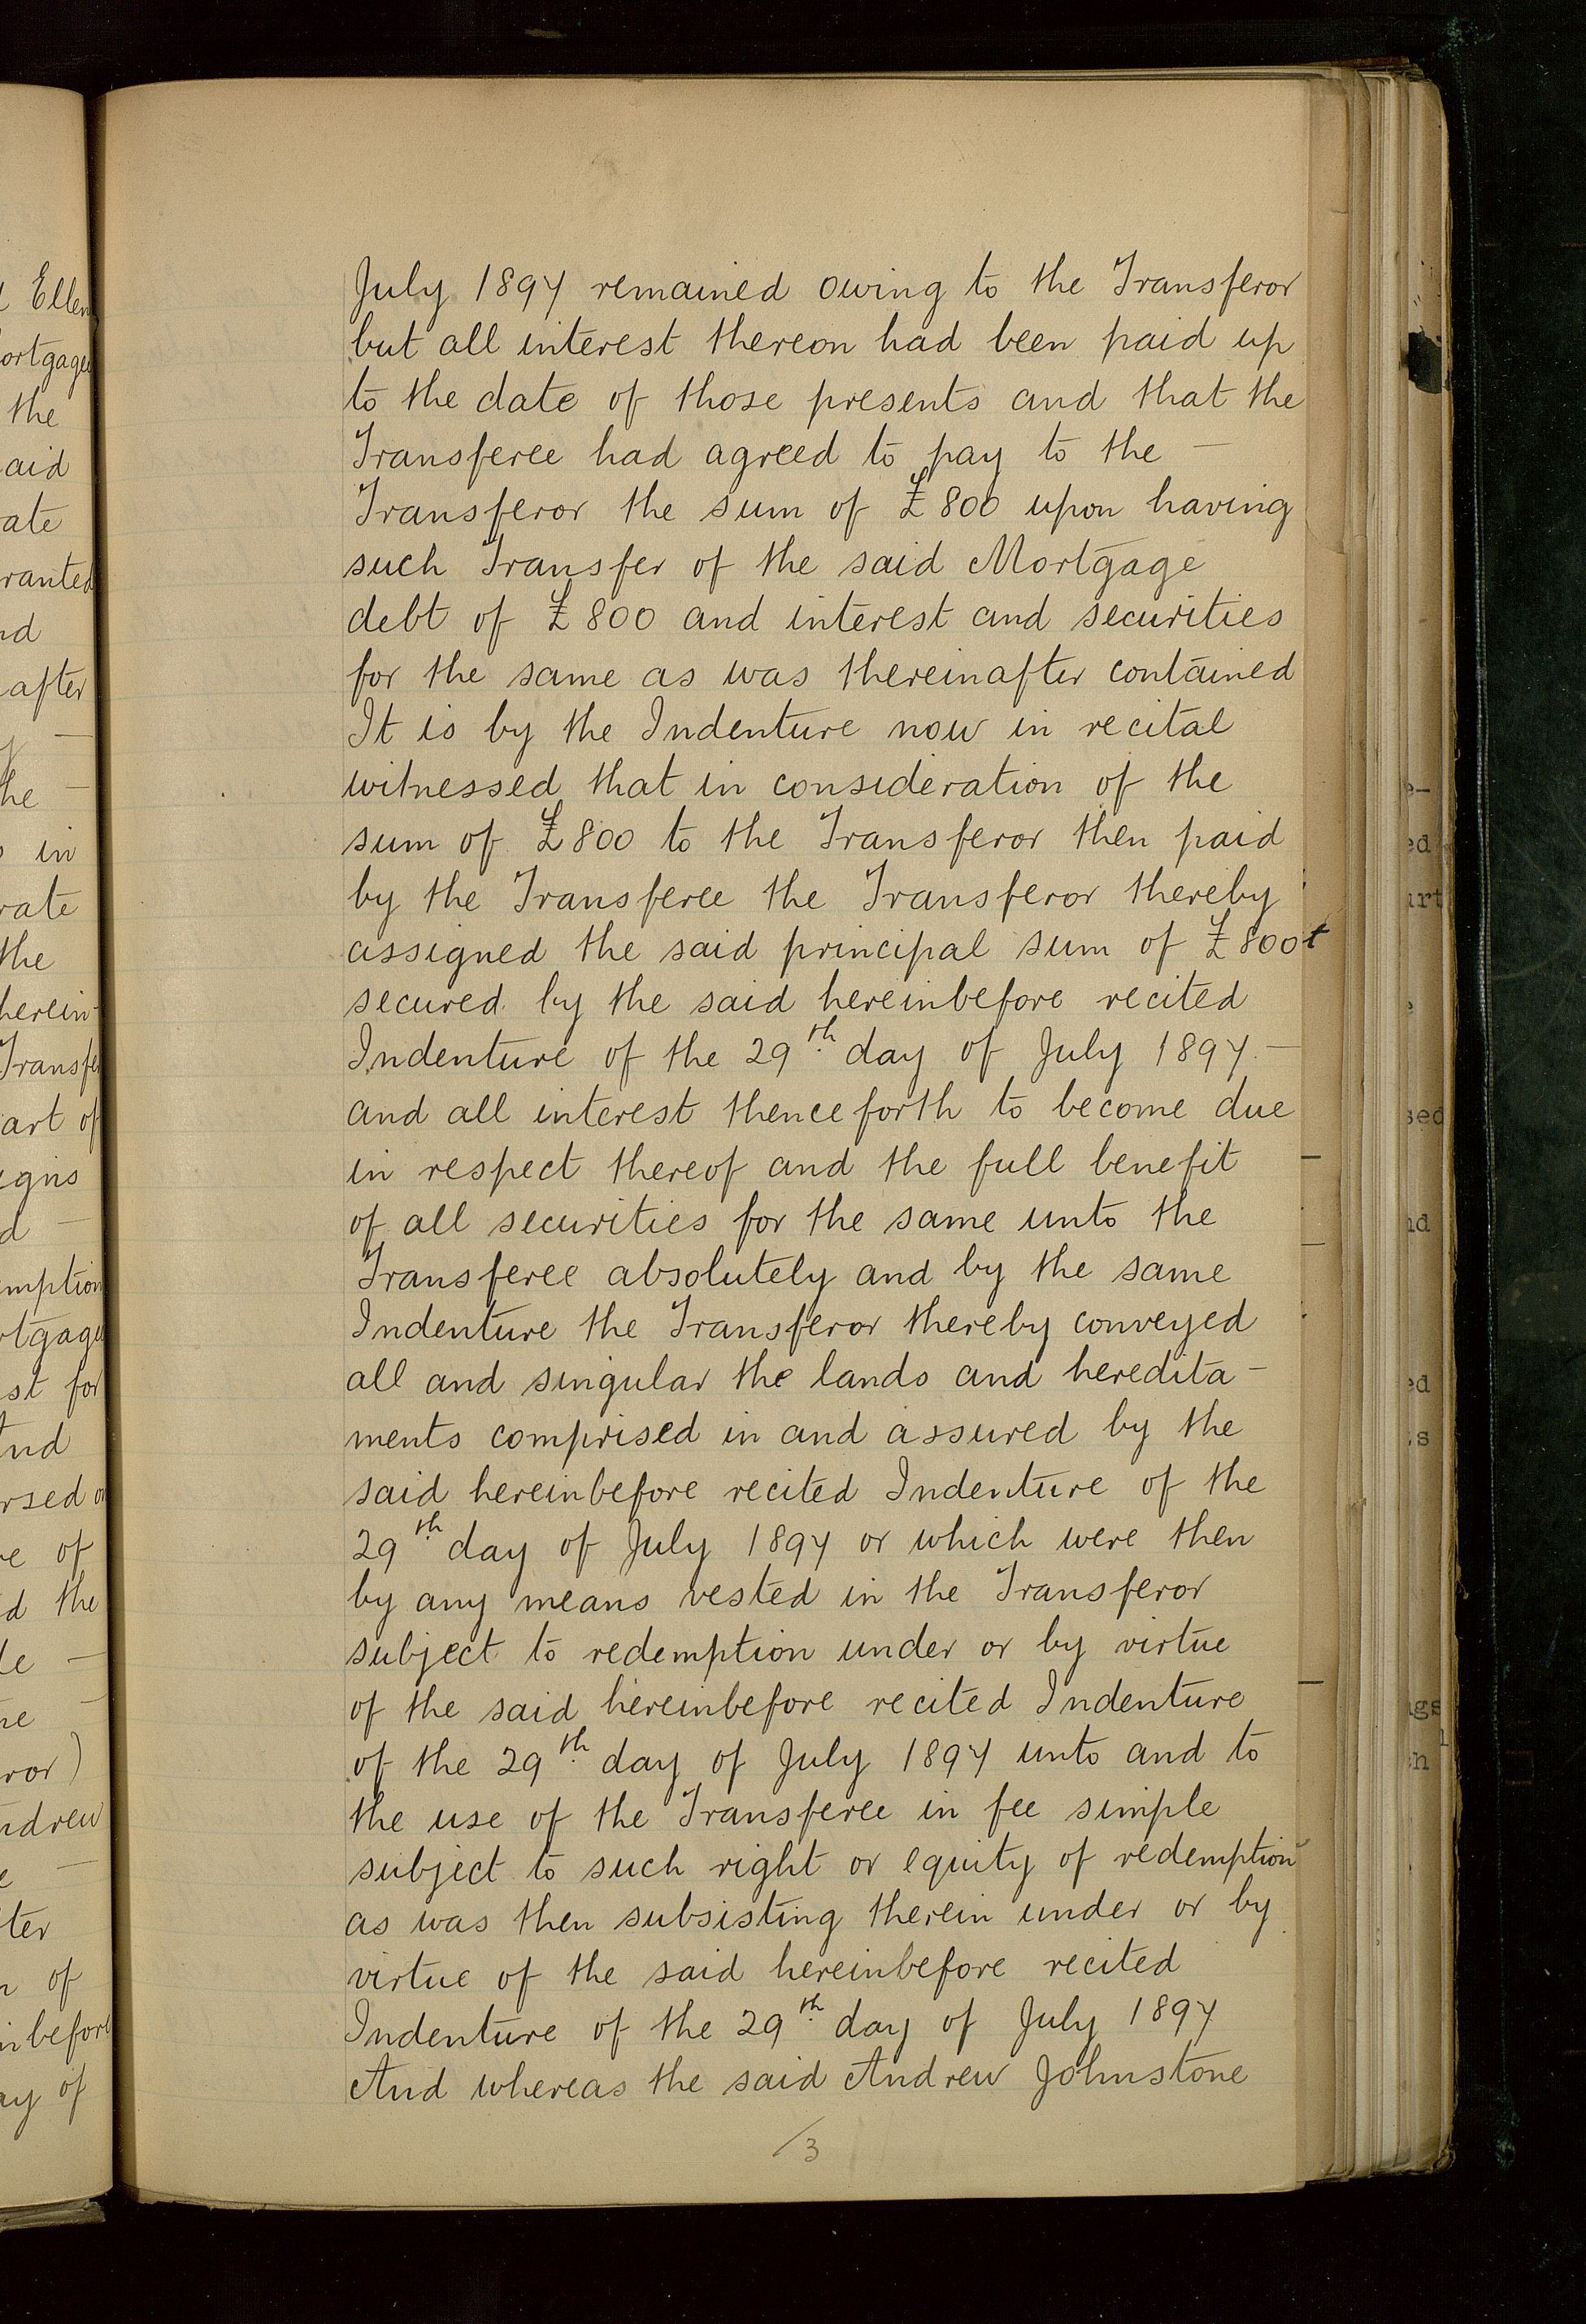 July 1897 remained owing to the Transferor
but all interest thereon had been paid up
to the date of those presents and that the
Transferee had agreed to pay to the —
Transferor the sum of £800 upon having
such Transfer of the said Mortgage
debt of £800 and interest and securities
for the same as was thereinafter contained
It is by the Indenture now in recital
witnessed that in consideration of the
sum of £800 to the Transferor then paid
by the Transferee the Transferor thereby
assigned the said principal sum of £800
secured by the said hereinbefore recited
Indenture of the 29th day of July 1897 —
and all interest thenceforth to become due
in respect thereof and the full benefit
of all securities for the same unto the
Transferee absolutely and by the same
Indenture the Transferor thereby conveyed
all and singular the lands and heredita-
ments comprised in and assured by the
said hereinbefore recited Indenture of the
29th day of July 1897 or which were then
by any means vested in the Transferor
subject to redemption under or by virtue
of the said hereinbefore recited Indenture
of the 29th day of July 1897 unto and to
the use of the Transferee in fee simple
subject to such right or equity of redemption
as was then subsisting therein under or by
virtue of the said hereinbefore recited
Indenture of the 29th day of July 1897
And whereas the said Andrew Johnstone
/3